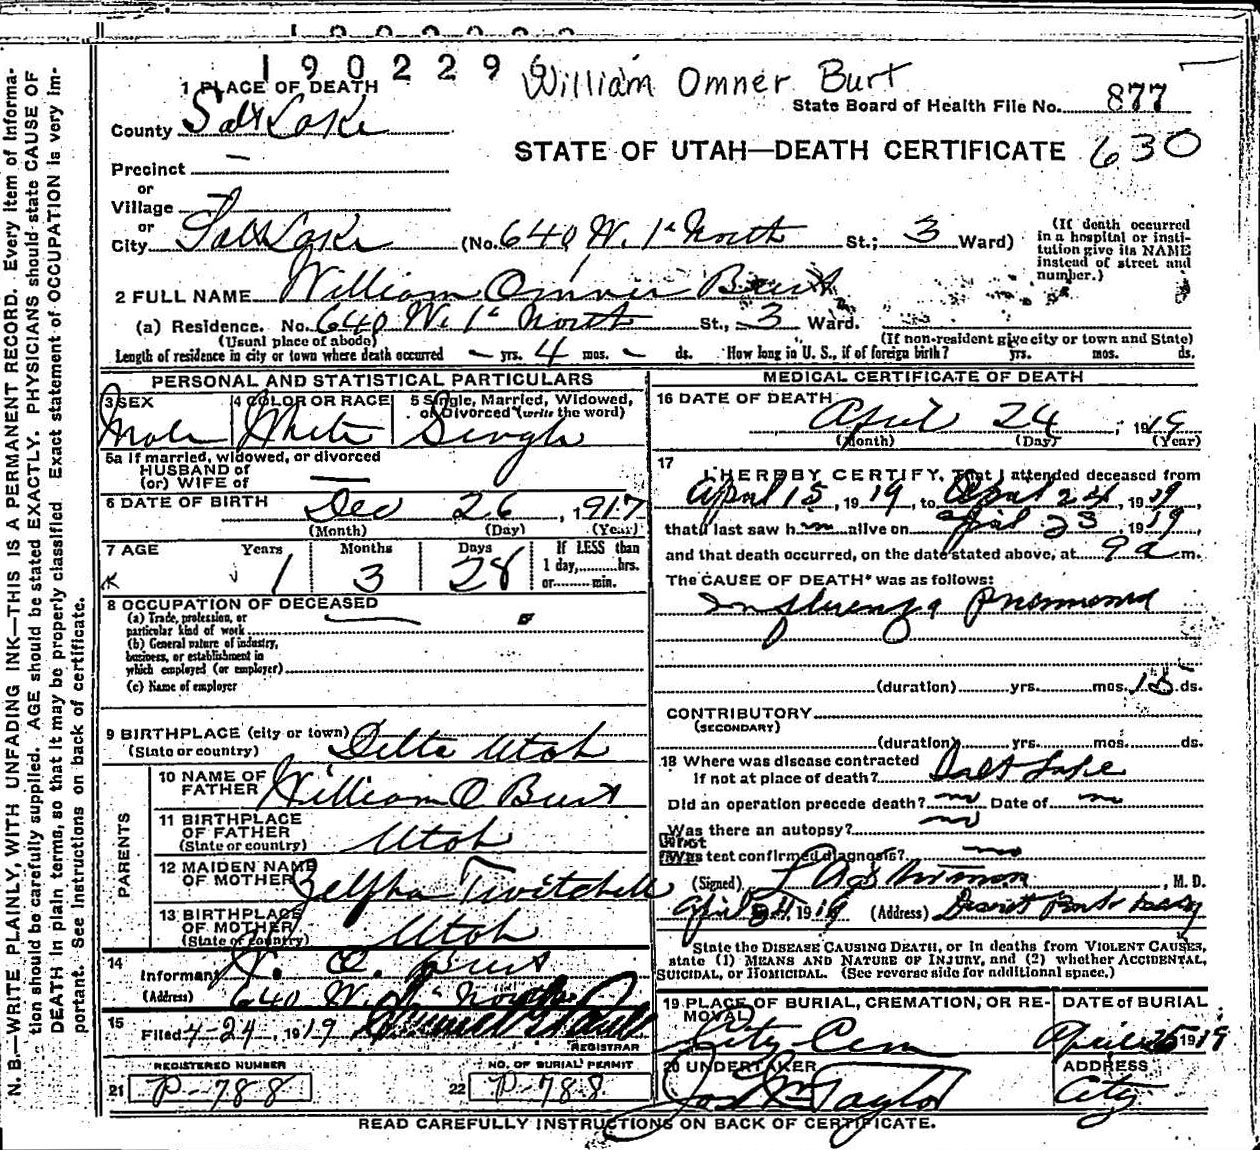 1902296 William Omner Burt
1 PLACE OF DEATH
State Board of Health File No. 877
County Salt Lake
STATE OF UTAH—DEATH CERTIFICATE 630
Precinct —
or
Village —
or
City Salt Lake (No. 640 W. 1st North St.; 3 Ward)
(If death occurred in a hospital or insti-
tution give its NAME
instead of street and
number.)
2 FULL NAME William Omner Burt
(a) Residence. No. 640 W. 1st North St., 3 Ward.
(Usual place of abode) (If non-resident give city or town and State)
Length of residence in city or town where death occurred — yrs. 4 mos. — ds. How long in U. S., if of foreign birth? yrs. mos. ds.
PERSONAL AND STATISTICAL PARTICULARS
3 SEX Male
4 COLOR OR RACE White
5 Single, Married, Widowed,
or Divorced (write the word)
Single
5a If married, widowed, or divorced
HUSBAND of
(or) WIFE of —
6 DATE OF BIRTH Dec 26, 1917
(Month) (Day) (Year)
7 AGE Years Months Days If LESS than
1 day,......hrs.
or......min.
1 3 28
8 OCCUPATION OF DECEASED
(a) Trade, profession, or
particular kind of work
(b) General nature of industry,
business, or establishment in
which employed (or employer)
(c) Name of employer
9 BIRTHPLACE (city or town)
(State or country) Delta Utah
PARENTS
10 NAME OF
FATHER William O Burt
11 BIRTHPLACE
OF FATHER
(State or country) Utah
12 MAIDEN NAME
OF MOTHER Zelpha Twitchell
13 BIRTHPLACE
OF MOTHER
(State or country) Utah
14
Informant W. O. Burt
(Address) 640 W. 1st North
15
Filed 4-24, 1919
REGISTRAR
REGISTERED NUMBER
21 P-788
NO. OF BURIAL PERMIT
22 P-788
MEDICAL CERTIFICATE OF DEATH
16 DATE OF DEATH
April 24, 1919
(Month) (Day) (Year)
17
I HEREBY CERTIFY, That I attended deceased from
April 15, 1919, to April 24, 1919,
that I last saw him alive on April 23, 1919
and that death occurred, on the date stated above, at 9 a m.
The CAUSE OF DEATH* was as follows:
Influenza pneumonia
(duration) yrs. mos. 15 ds.
CONTRIBUTORY
(SECONDARY)
(duration) yrs. mos. ds.
18 Where was disease contracted
if not at place of death? Salt Lake
Did an operation precede death? no Date of no
Was there an autopsy? no
What
test confirmed diagnosis? no
(Signed) , M. D.
April 24, 1919 (Address) Deseret Bank Bldg
State the DISEASE CAUSING DEATH, or in deaths from VIOLENT CAUSES,
state (1) MEANS AND NATURE OF INJURY, and (2) whether ACCIDENTAL,
SUICIDAL, or HOMICIDAL. (See reverse side for additional space.)
19 PLACE OF BURIAL, CREMATION, OR RE-
MOVAL
City Cem
DATE of BURIAL
April 25 1919
20 UNDERTAKER
Jos Wm Taylor
ADDRESS
City
READ CAREFULLY INSTRUCTIONS ON BACK OF CERTIFICATE.
N. B.—WRITE PLAINLY, WITH UNFADING INK—THIS IS A PERMANENT RECORD. Every item of informa-
tion should be carefully supplied. AGE should be stated EXACTLY. PHYSICIANS should state CAUSE OF
DEATH in plain terms, so that it may be properly classified. Exact statement of OCCUPATION is very im-
portant. See instructions on back of certificate.